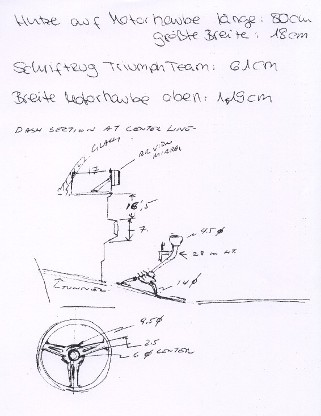 Hutze auf Motorhaube länge: 80cm
größte Breite: 18cm
Schriftzug Triumph Team: 61cm
Breite Motorhaube oben: 1,19cm
DASH SECTION AT CENTER LINE
GLASS
REVIEW MIRROR
17
16,5
7
4.5 Ø
TUNNEL
14 Ø
4.5 Ø
2.5
6 Ø CENTER